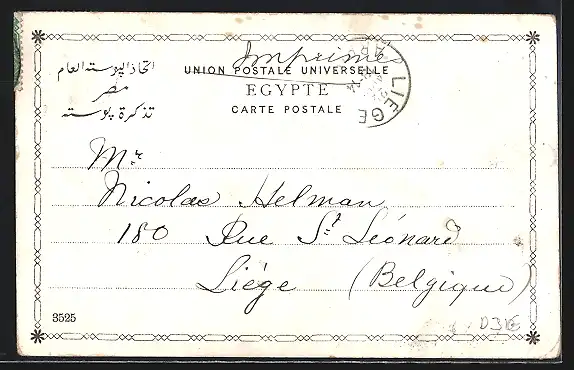 Imprimés
اتحاد البوسته العام
مصر
تذكرة بوسته
UNION POSTALE UNIVERSELLE
EGYPTE
CARTE POSTALE
LIEGE
Mr
Nicolas Helman
180 Rue St Léonard
Liége (Belgique)
3525